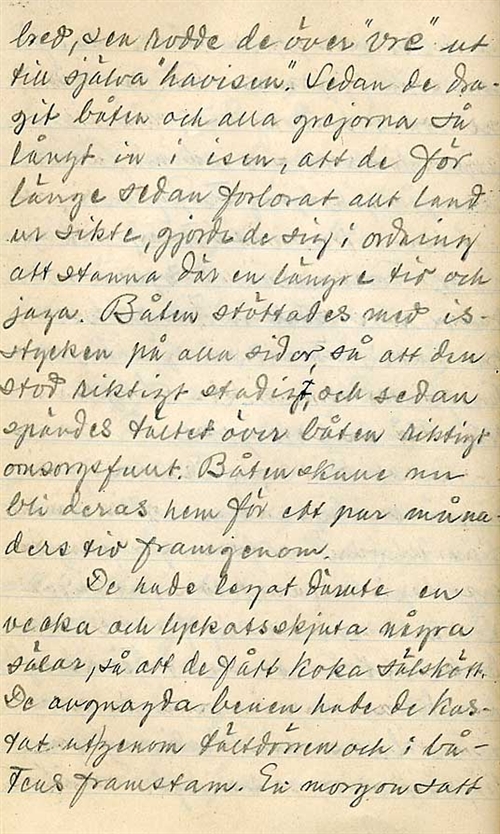 bred, sen rodde de över "vre" ut
till själva "havisen". Sedan de dra-
git båten och alla grejorna så
långt in i isen, att de för
länge sedan förlorat allt land
ur sikte, gjorde de sig i ordning
att stanna där en längre tid och
jaga. Båten stöttades med is-
stycken på alla sidor, så att den
stod riktigt stadigt, och sedan
spändes tältet över båten riktigt
omsorgsfullt. Båten skulle nu
bli deras hem för ett par måna-
ders tid framigenom.
De hade legat därute en
vecka och lyckats skjuta några
sälar, så att de fått koka sälskött.
De avgnagda benen hade de kas-
tat ut genom tältdörren och i bå-
tens framstam. En morgon satt